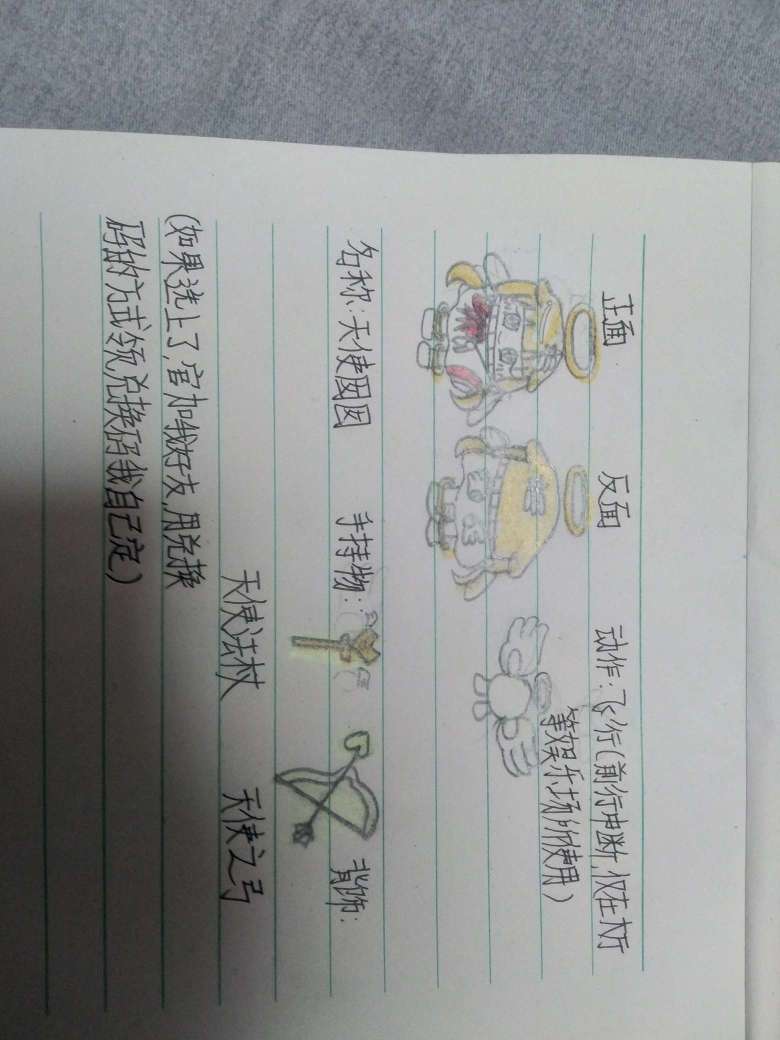 正面
反面
动作:飞行(前行中断,仅在大厅
等娱乐场所使用)
名称:天使团团
手持物:
背饰:
天使法杖
天使之弓
(如果选上了,官加我好友,用兑换
码的方式领,兑换码我自己定)